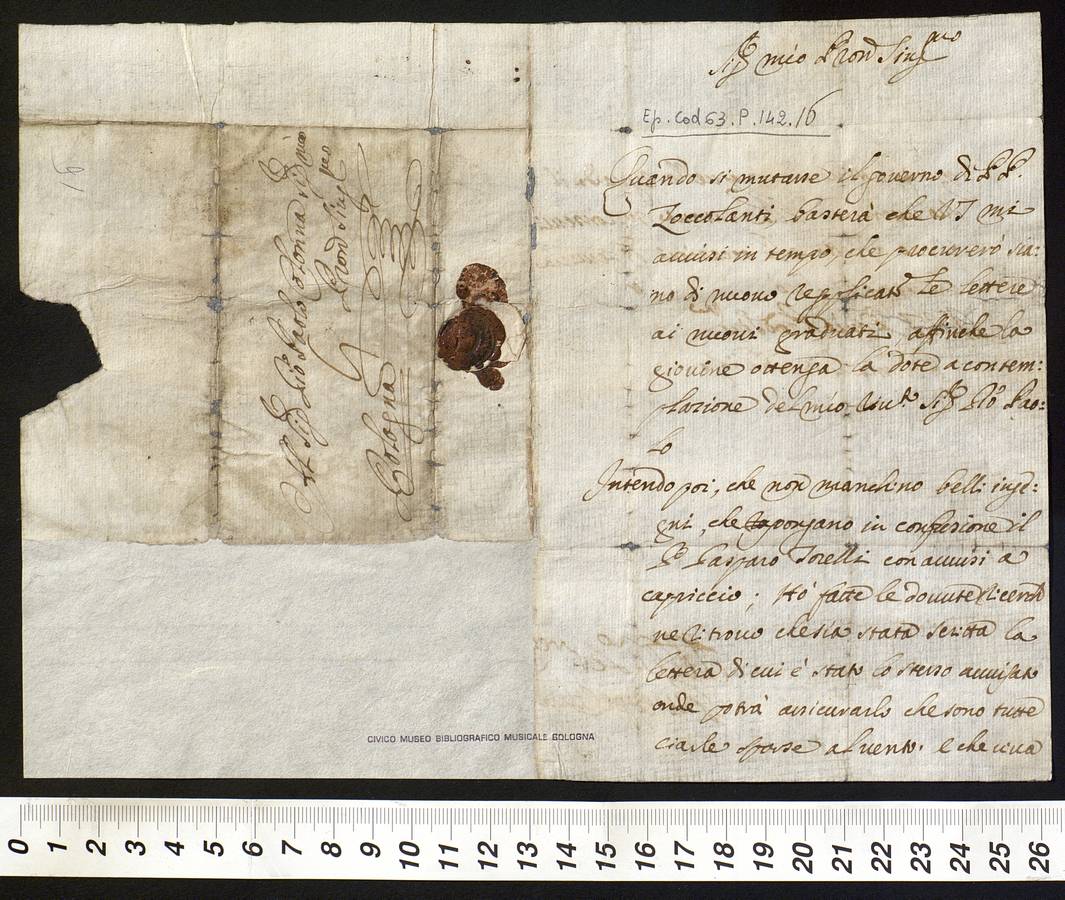 Sig.r mio Pron Sing.mo
Ep. Cod 63. P. 142. 16
Quando si mutasse il governo di PP.
Zoccolanti, basterà che VS mi
avvisi in tempo, che procurerò sia:
no di nuovo replicate le lettere
ai nuovi graduati, affinche la
giovine ottenga la dote a contem:
plazione del mio Sig.r Gio Pao:
lo
Intendo poi, che non manchino belli inge:
gni, che pongano in confusione il
Gasparo Torelli con avvisi a
capriccio; Hò fatte le dovute ricerche
ne ritrovo che sia stata scritta la
lettera di cui è stato lo stesso avvisato
onde potrà assicurarlo che sono tutte
ciarle sparse al vento. e che viva
Al Sig.r Gio: Paolo Colonna mio
Pron Sing.mo
Bologna
16
CIVICO MUSEO BIBLIOGRAFICO MUSICALE BOLOGNA
0 1 2 3 4 5 6 7 8 9 10 11 12 13 14 15 16 17 18 19 20 21 22 23 24 25 26